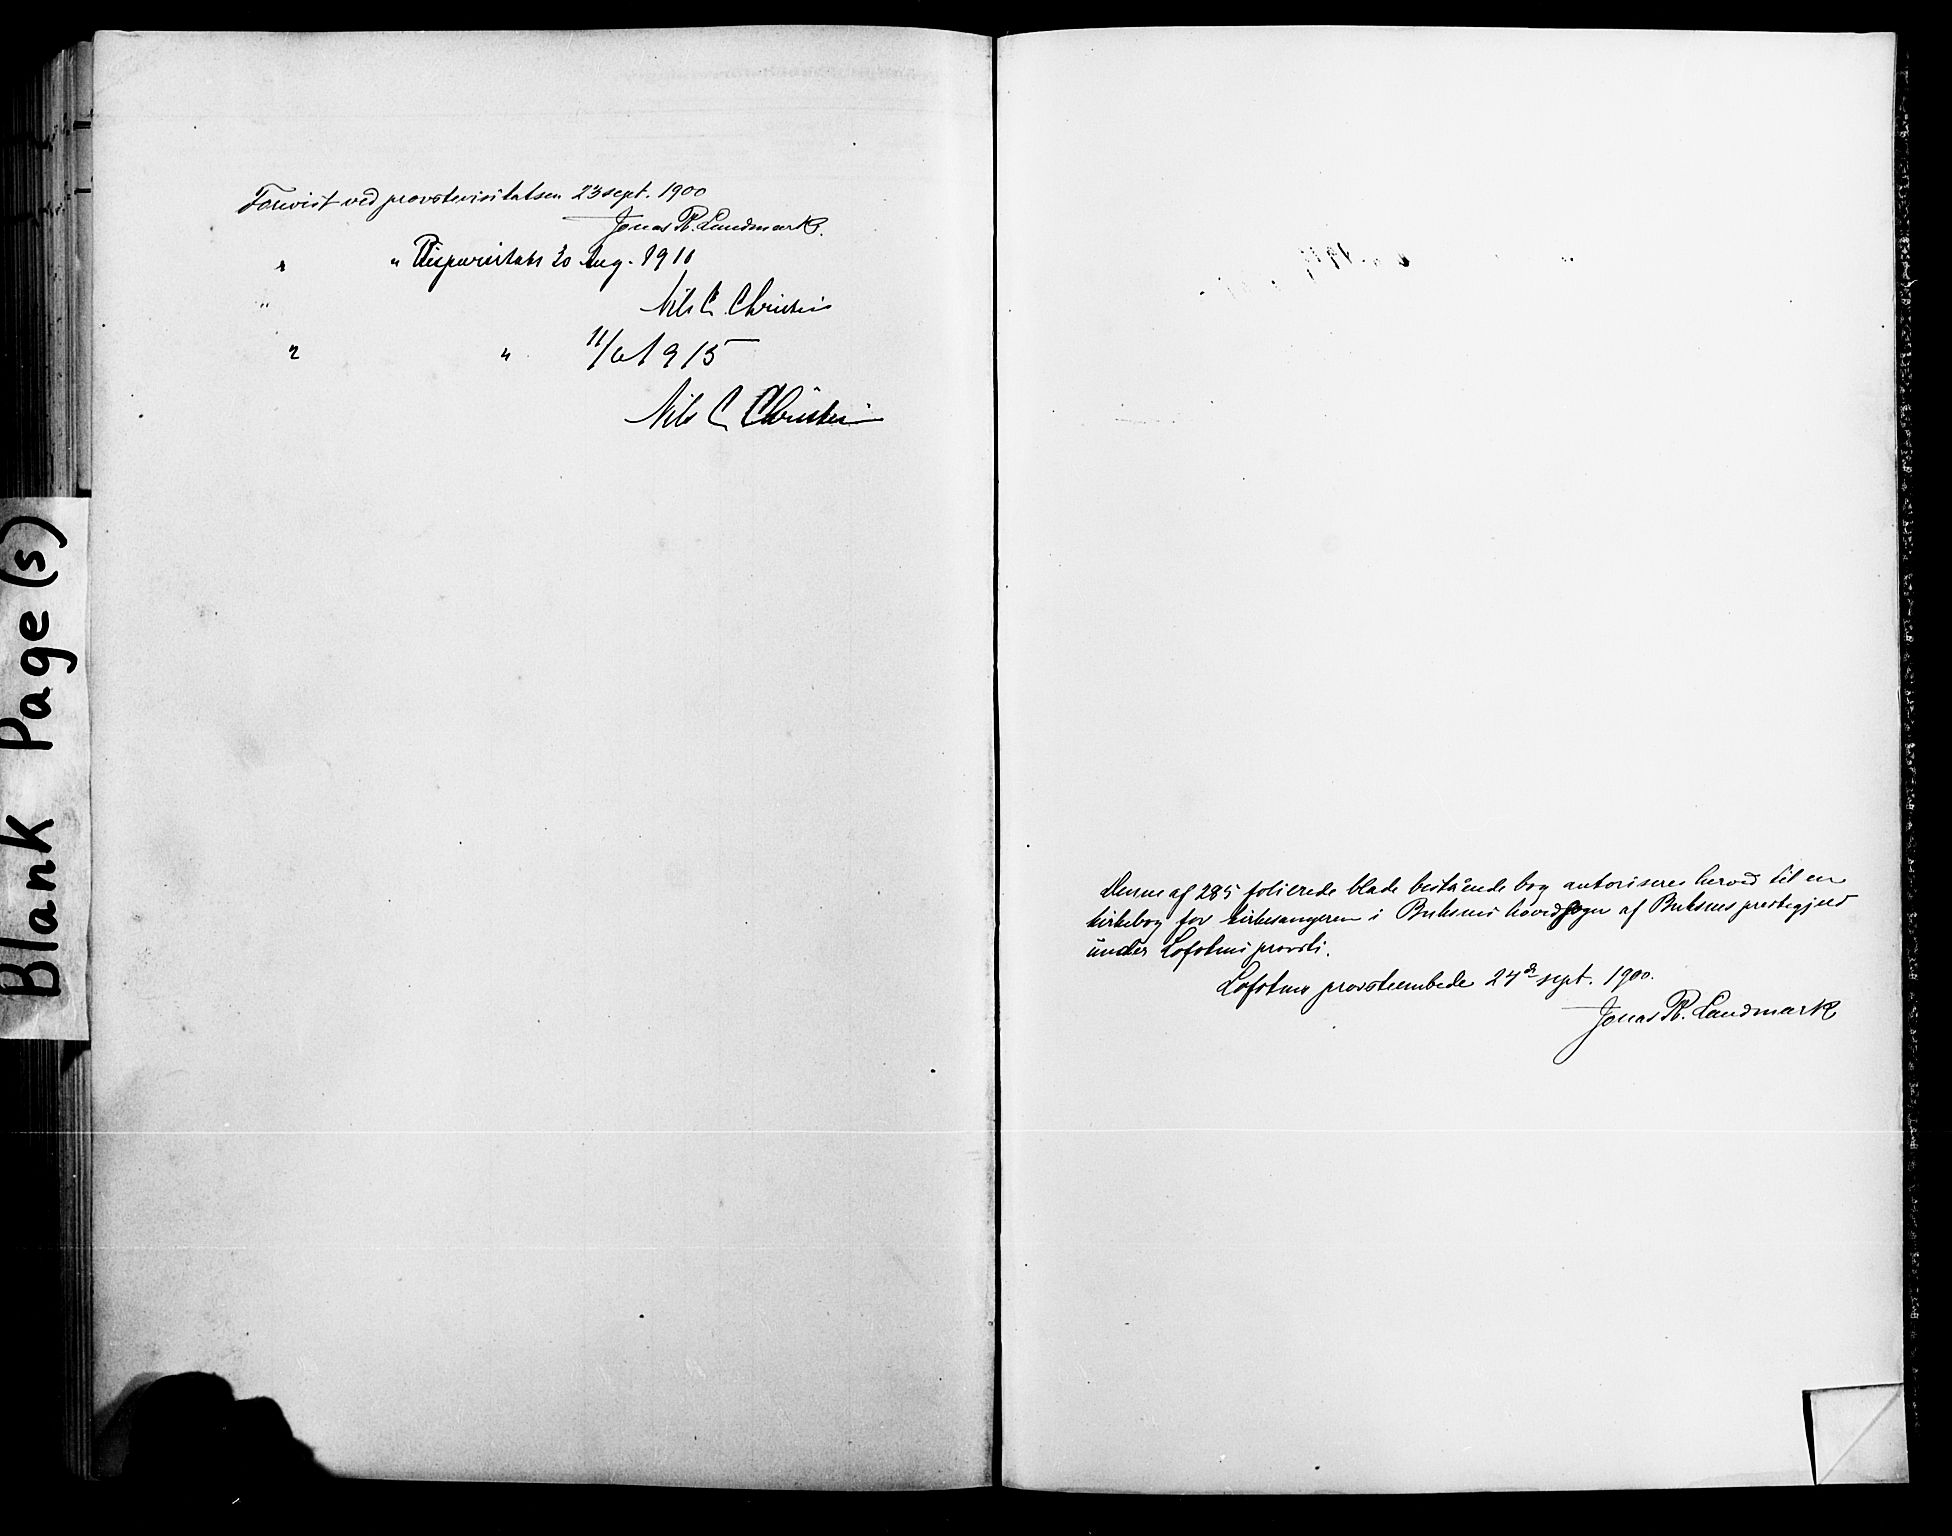 Blank Page(s)
Forevist ved provstevisitatsen 23 sept. 1900
Jonas R. Landmark.
" " Bispevisitats 20 Aug. 1911
"
Nils C. Christie
" " 11/ 1915
Nils C Christie
Denne af 285 folierede blade bestående bog autoriseres herved til en
kirkebog for kirkesangeren i Buksnes hovedsogn af Buksnes prestegjeld
under Lofotens provsti.
Lofotens provsteembede 24de sept. 1900.
Jonas R. Landmark